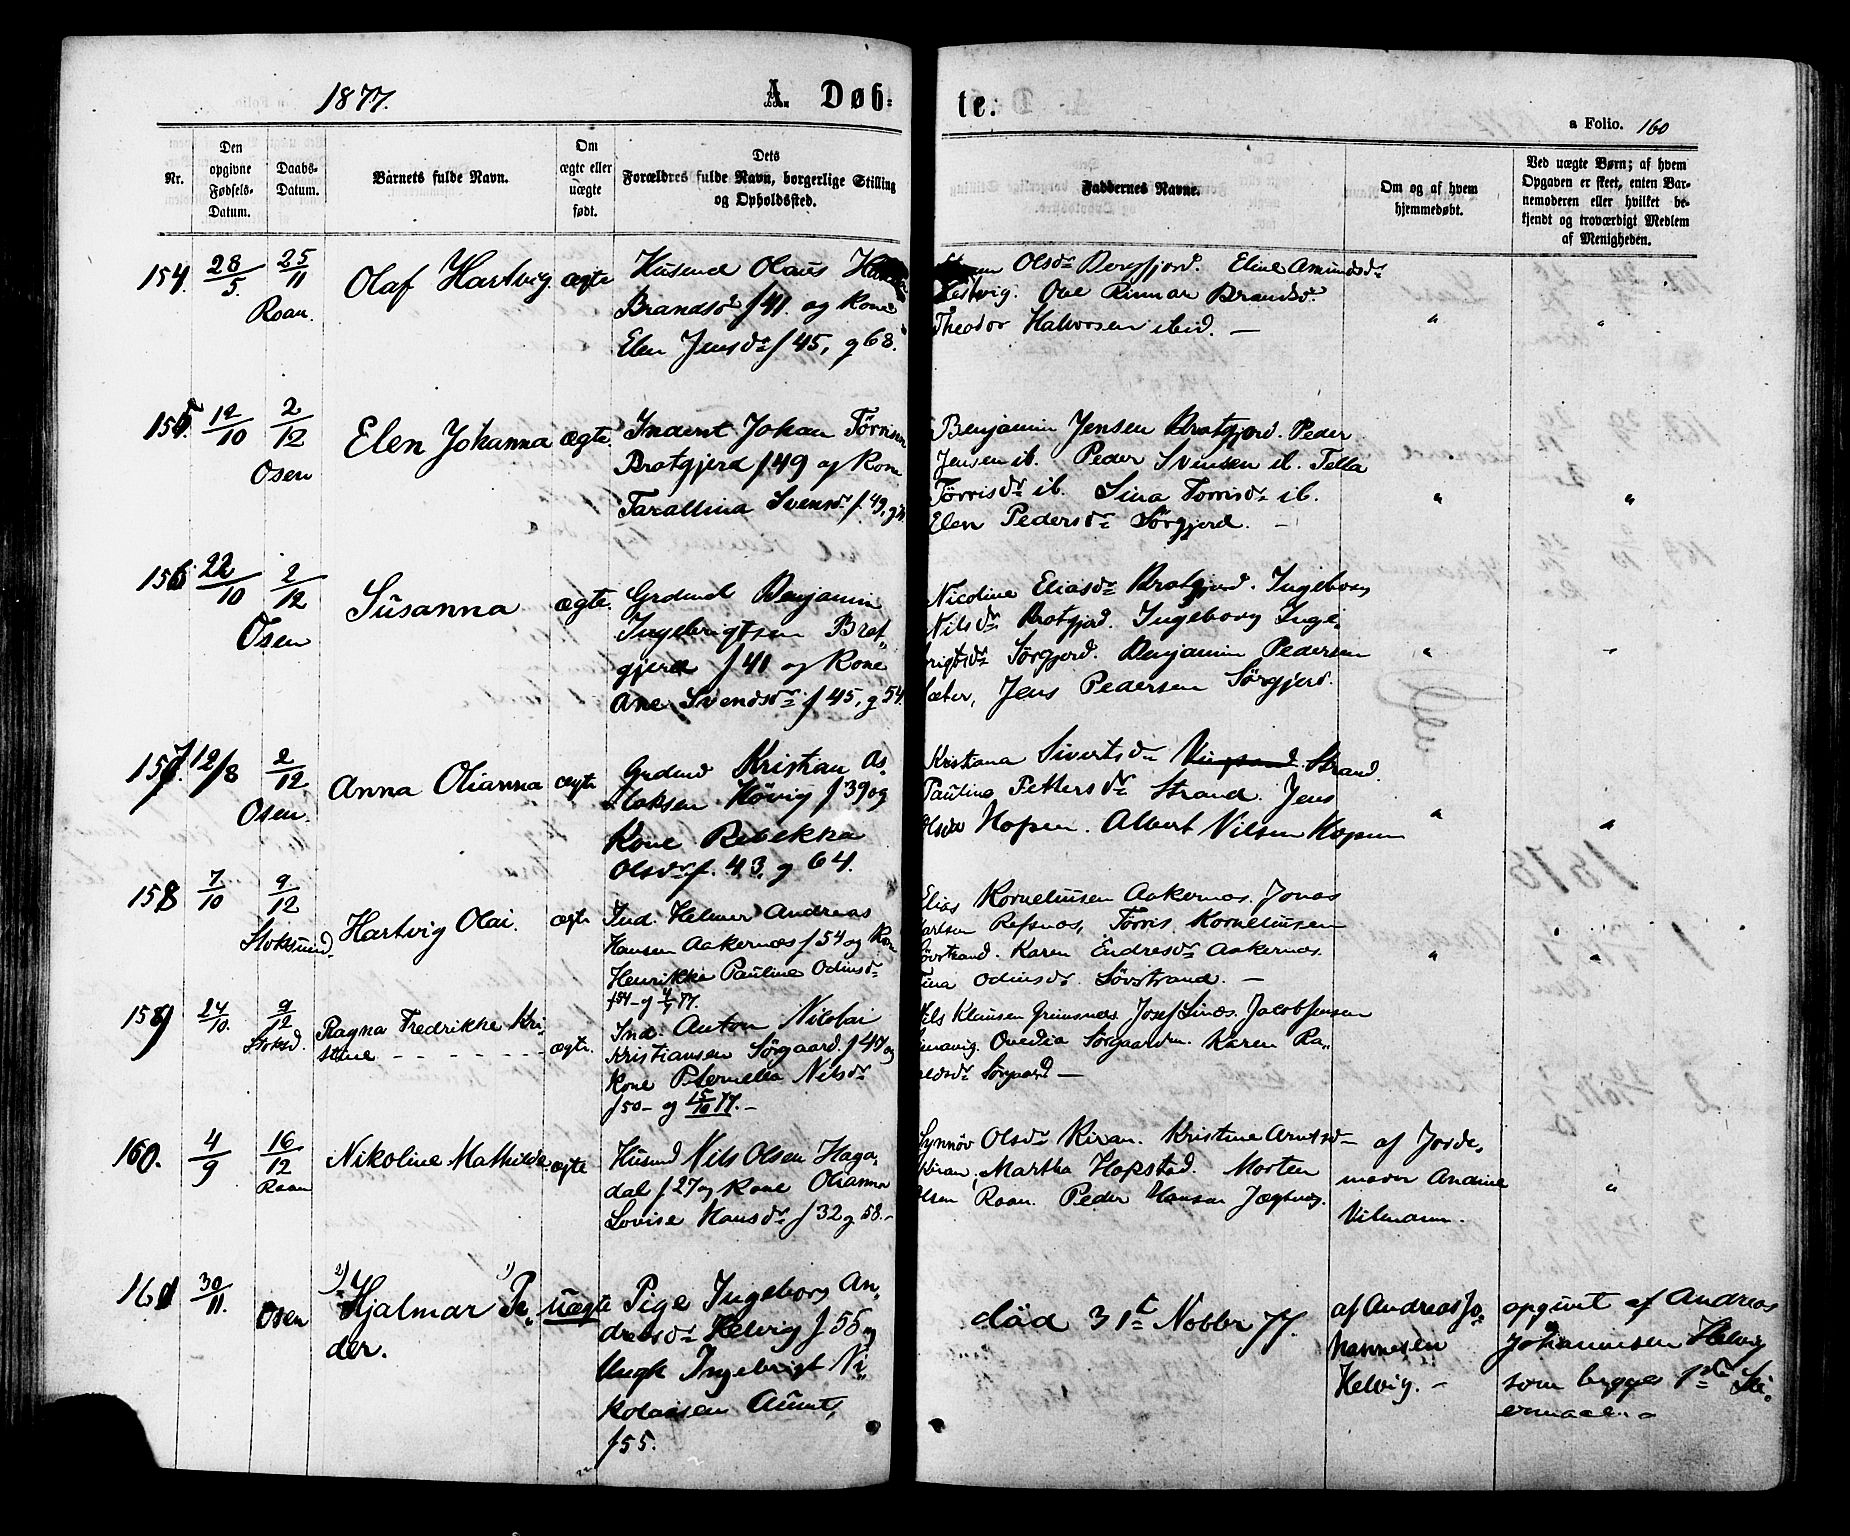 1877.
A. Døb-
te.
a Folio. 160
Nr.
Den opgivne Fødsels-Datum.
Daabs-Datum.
Barnets fulde Navn.
Om ægte eller uægte født.
Dets Forældres fulde Navn, borgerlige Stilling og Opholdssted.
Faddernes Navne.
Om og af hvem hjemmedøbt.
Ved uægte Børn; af hvem Opgaven er skeet, enten Barnemoderen eller hvilket bekjendt og troværdigt Medlem af Menigheden.
154 28/5. 25/11
Roan.
Olaf Hartvig ægte
Husmd Olaus
Brandsö f 41. og Kone
Elen Jensdr f 45, g 68.
Olsdr Bergfjord. Eline Amundsdr
Ove Rinnar Brandsö.
Theodor Halvorsen ibid. —
" "
155 12/10 2/12
Osen
Elen Johanna ægte.
Inderst Johan Törrisen
Bratgjerd f 49 og Kone
Tarallina Svensdr f. 49,
Benjamin Jensen Bratgjerd. Peder
Jensen ib. Peder Svensen ib. Tella
Törrisdr ib. Sina Torrisdr ib.
Elen Pedersdr Sörgjerd. —
" "
156 22/10 2/12
Osen
Susanna ægte.
Grdmd Benjamin
Ingebrigtsen Brat-
gjerd f 41 og Kone
Ane Svendsdr f 45, g 54.
Nicoline Eliasdr Bratgjerd. Ingeborg
Nilsdr Bratgjerd. Ingeborg Inge-
brigtsdr Sörgjerd. Benjamin Pedersen
Sæter, Jens Pedersen Sörgjerd.
" "
157. 12/8 2/12
Osen.
Anna Olianna ægte
Grdmd Kristian As-
laksen Hövig f 39 og
Kone Rebekka
Olsdr f. 43. g 64.
Kristiana Sivertsdr Vingsand Strand.
Pauline Pettersdr Strand. Jens
Hopen. Albert Nilsen Hopen
" "
158 7/10 9/12
Stoksund.
Hartvig Olai. ægte
Ind. Helmer Andreas
Hansen Aakernæs f 54 og Kone
Henrikke Pauline Odinsdr
f 54 - g 4/7 77.
Elias Korneliussen Aakernæs. Jonas
Karlsen Refsnæs, Törris Korneliussen
Sövstrand. Karen Endresdr Aakernæs.
Tina Odinsdr Sövstrand. —
" "
159 24/10. 9/12
Stoksd.
Ragna Fredrikke Kri-
stine ægte.
Ind. Anton Nicolai
Kristiansen Sörgaard. f 47 og
Kone Pternella Nilsdr
f 50 - og 15/10 77. -
Nils Klausen Grönsnes. Josef Linæs. Jacob Jensen
Ovedia Sörgaarden. Karen Ra-
Sörgaard —
160. 4/9 16/12
Roan
Nikoline Mathilde ægte
Husmd Nils Olsen Haga-
dal f 27 og Kone Olianna
Lovise Hansdr f 32 g 58. -
Synnöv Olsdr Kiran. Kristine Arntsdr
Kiran, Martha Hopstad. Morten
Olsen Roan. Peder Hansen Jægtvæg.
af Jorde-
moder Andine
Vilmann.
"
161 30/11.
Osen
2) Hjalmar 1) Pe-
der.
uægte
Pige Ingeborg An-
dreasdr Helvig f 55 og
Ungk Ingebrigt Ni-
kolaisen Aunet,
f 55.
död 31t Nobbr 77.
af Andreas Jo-
hannesen
Helvig. -
opgivet af Andreas
Johannesen Helvig
som begges 1ste Lei-
ermaal. -